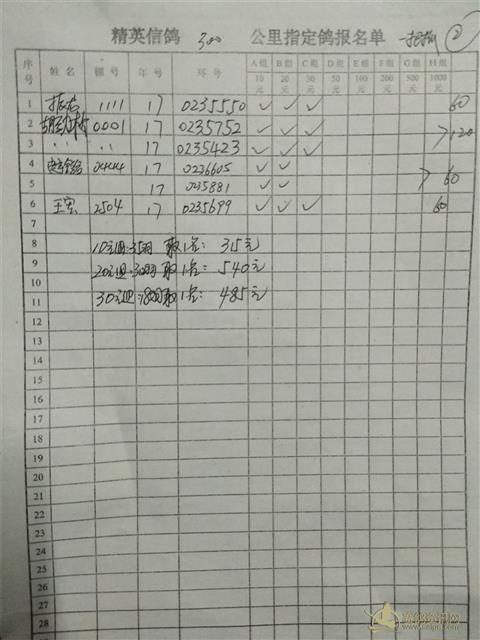 精英信鸽 300 公里指定鸽报名单 ②
序号 姓名 棚号 年号 环号 A组 B组 C组 D组 E组 F组 G组 H组
10元 20元 30元 50元 100元 200元 500元 1000元
1 1111 17 0235550 ✓ ✓ ✓ 60
2 0001 17 0235752 ✓ ✓ ✓ >120
3 〃 〃 17 0235423 ✓ ✓ ✓
4 17 0236605 ✓ ✓ > 60
5 17 0235881 ✓ ✓
6 王宏 2504 17 0235699 ✓ ✓ ✓ 60
7
8 10元组: 取1名: 315元
9 20元组: 取1名: 540元
10
11 30元组: 取1名: 485元
12
13
14
15
16
17
18
19
20
21
22
23
24
25
26
27
28